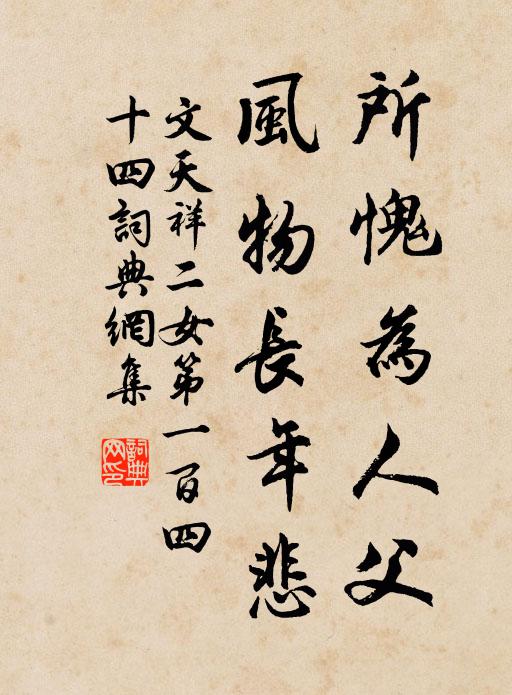 所愧為人父
風物長年悲
文天祥二女第一百四
十四詞典網集
詞典
网印